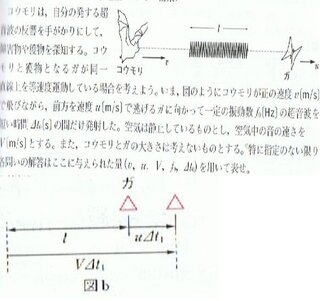 コウモリは、自分の発する超
音波の反響を手がかりにして、
障害物や獲物を探知する。コウ
モリと獲物となるガが同一
直線上を等速度運動している場合を考えよう。いま、図のようにコウモリが正の速度v[m/s]
で飛びながら、前方を速度u[m/s]で逃げるガに向かって一定の振動数f₀[Hz]の超音波を
短い時間Δt₀[s]の間だけ発射した。空気は静止しているものとし、空気中の音の速さを
V[m/s]とする。また、コウモリとガの大きさは考えないものとする。特に指定のない限り
各問いの解答はここに与えられた量(v, u, V, f₀, Δt₀)を用いて表せ。
コウモリ
l
ガ
ガ
l
uΔt₁
VΔt₁
図b